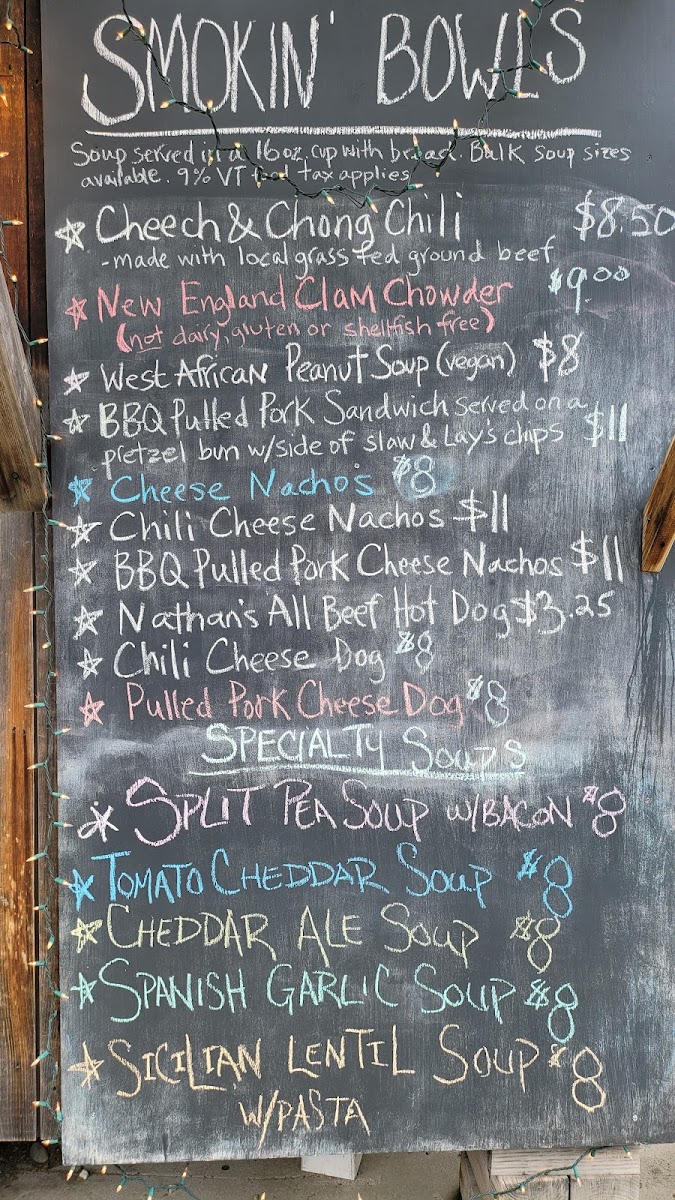 SMOKIN' BOWLS
Soup served in a 16oz. cup with bread. Bulk soup sizes
available. 9% VT food tax applies
☆ Cheech & Chong Chili $8.50
-made with local grass fed ground beef
☆ New England Clam Chowder $9.00
(not dairy, gluten or shellfish free)
☆ West African Peanut Soup (vegan) $8
☆ BBQ Pulled Pork Sandwich served on a
pretzel bun w/side of slaw & Lay's chips $11
☆ Cheese Nachos $8
☆ Chili Cheese Nachos $11
☆ BBQ Pulled Pork Cheese Nachos $11
☆ Nathan's All Beef Hot Dog $3.25
☆ Chili Cheese Dog $8
☆ Pulled Pork Cheese Dog $8
SPECIALTY SOUPS
☆ SPLIT PEA SOUP W/BACON $8
☆ TOMATO CHEDDAR SOUP $8
☆ CHEDDAR ALE SOUP $8
☆ SPANISH GARLIC SOUP $8
☆ SICILIAN LENTIL SOUP $8
W/PASTA